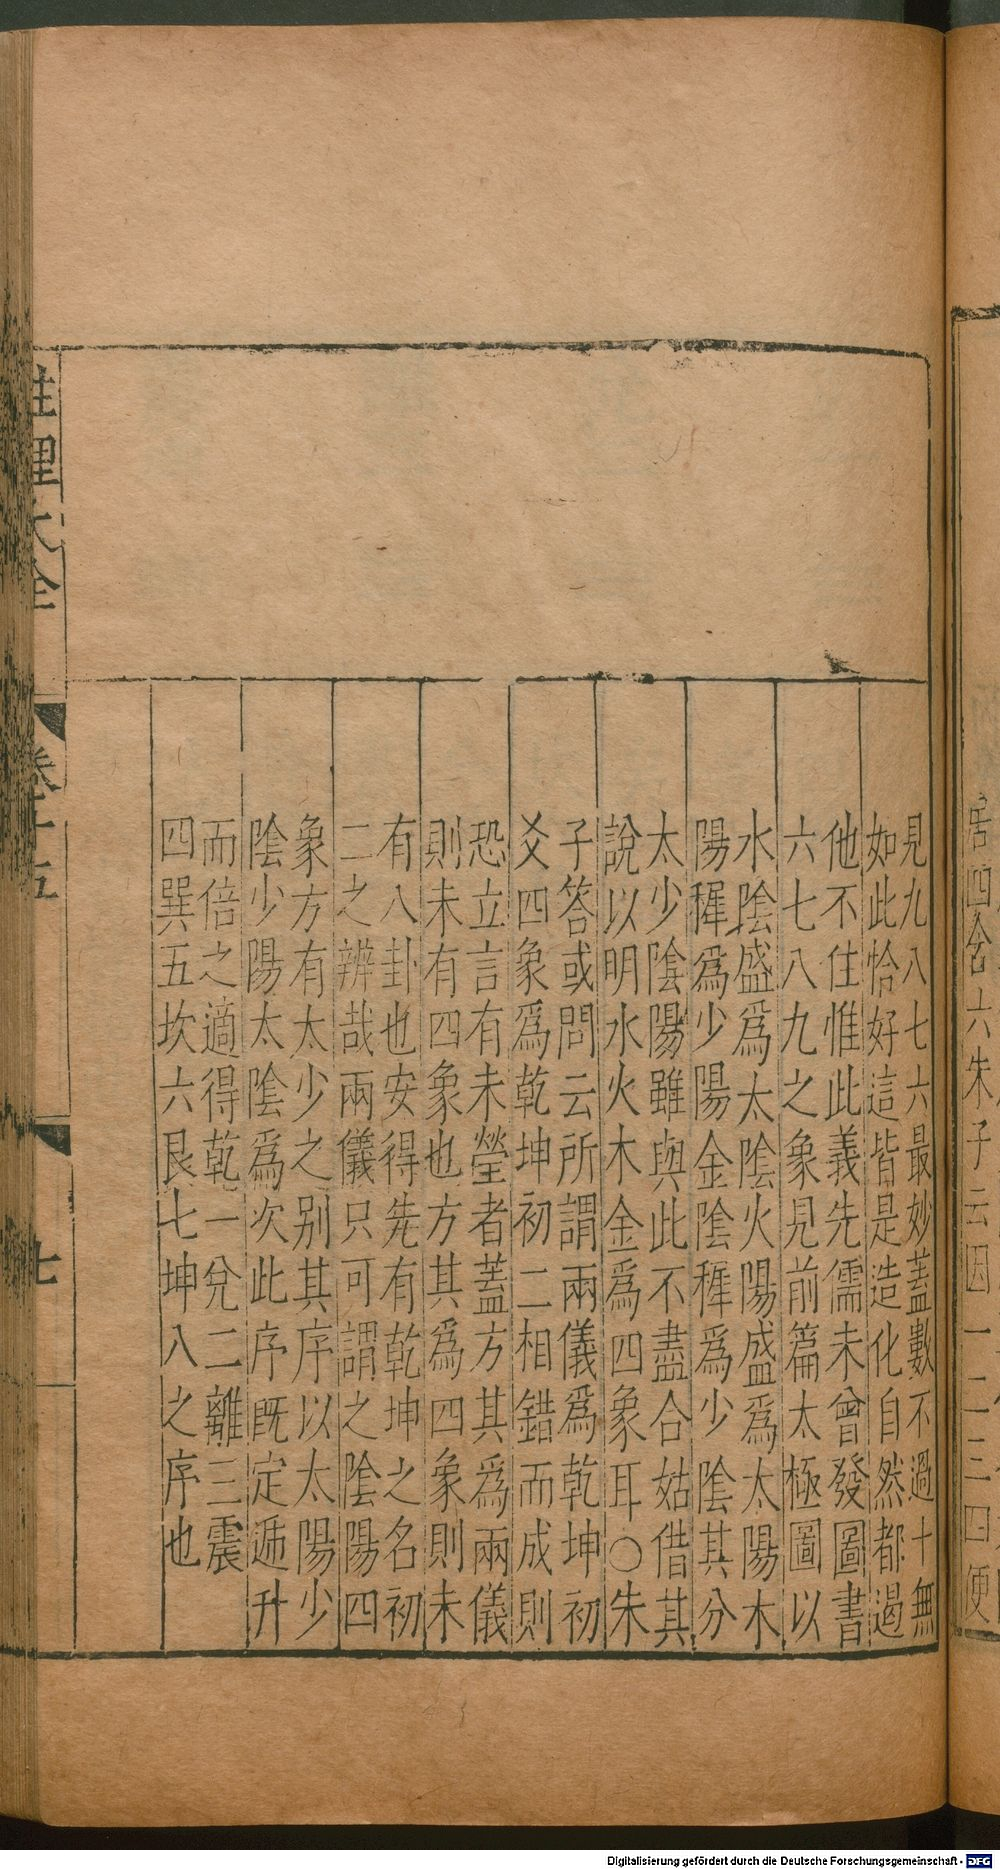 居四含六朱子云因一二三四便
見九八七六最妙蓋數不過十無
如此恰好這皆是造化自然都遏
他不住惟此義先儒未曾發圖書
六七八九之象見前篇太極圖以
水陰盛爲太陰火陽盛爲太陽木
陽穉爲少陽金陰穉爲少陰其分
太少陰陽雖與此不盡合姑借其
說以明水火木金爲四象耳〇朱
子答或問云所謂兩儀爲乾坤初
爻四象爲乾坤初二相錯而成則
恐立言有未瑩者蓋方其爲兩儀
則未有四象也方其爲四象則未
有八卦也安得先有乾坤之名初
二之辨哉兩儀只可謂之陰陽四
象方有太少之别其序以太陽少
陰少陽太陰爲次此序旣定遞升
而倍之適得乾一兌二離三震
四巽五坎六艮七坤八之序也
性理大全
卷十五
七
Digitalisierung gefördert durch die Deutsche Forschungsgemeinschaft - DFG